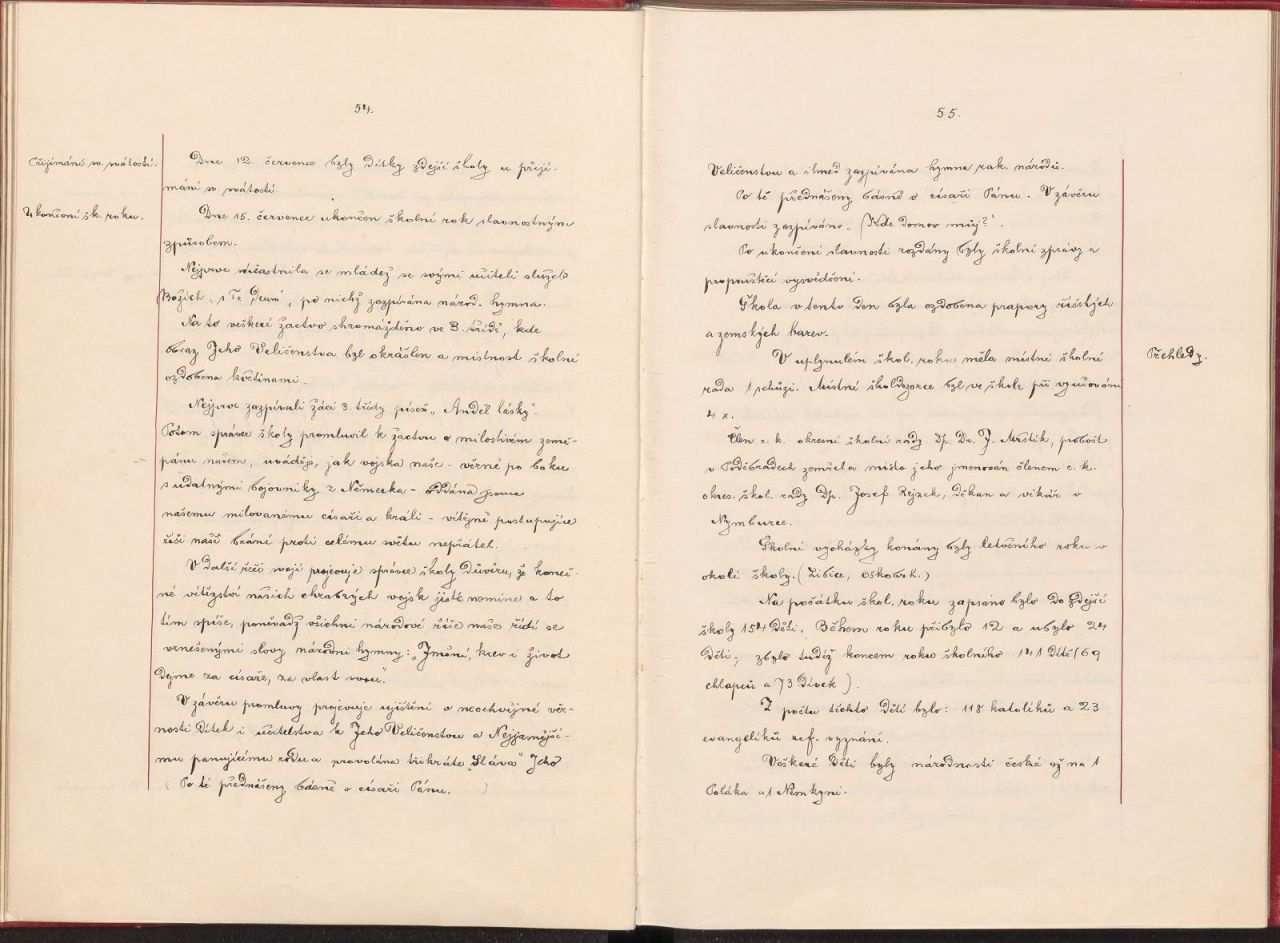 54.
Přijímání sv. svátostí.
Dne 12. července byly dítky zdejší školy u přijí-
mání sv. svátostí.
Ukončení šk. roku.
Dne 15. července ukončen školní rok slavnostním
způsobem.
Nejprve súčastnila se mládež se svými učiteli služeb
Božích „s Te Deum", po nichž zazpívána národ. hymna.
Na to veškeré žactvo shromážděno ve 3. třídě, kde
obraz Jeho Veličenstva byl okrášlen a místnost školní
ozdobena květinami.
Nejprve zazpívali žáci 3. třídy píseň „Anděl lásky".
Potom správce školy promluvil k žactvu o milostivém země-
pánu našem, uváděje, jak vojska naše - věrně po boku
s udatnými bojovníky z Německa - oddána jsouce
našemu milovanému císaři a králi - vítězně postupujíce
říši naší brání proti celému světu nepřátel.
V další řeči svojí projevuje správce školy důvěru, že koneč-
né vítězství našich chrabrých vojsk jistě nemine a to
tím spíše, poněvadž všichni národové říše naše řídí se
vznešenými slovy národní hymny: „Jmění, krev i život
dejme za císaře, za vlast svou".
V závěru promluvy projevuje ujištění o neochvějné věr-
nosti dítek i učitelstva k Jeho Veličenstvu a Nejjasnější-
mu panujícímu rodu a provolána třikráte „Sláva" Jeho
( Po té přednášeny básně o císaři Pánu. )
55.
Veličenstvu a ihned zazpívána hymna rak. národů.
Po té přednášeny básně o císaři Pánu. V závěru
slavnosti zazpíváno „Kde domov můj?".
Po ukončení slavnosti rozdány byly školní zprávy a
propouštěcí vysvědčení.
Škola v tento den byla ozdobena prapory říšských
a zemských barev.
Přehledy.
V uplynulém škol. roku měla místní školní
rada 1 schůzi. Místní školdozorce byl ve škole při vyučování
4 x.
Člen c. k. okresní školní rady Dp. Dr. J. Mrštík, probošt
v Poděbradech zemřel a místo jeho jmenován členem c. k.
okres. škol. rady Dp. Josef Rejzek, děkan a vikář v
Nymburce.
Školní vycházky konány byly letošního roku v
okolí školy. (Libice, Oškobrh.)
Na počátku škol. roku zapsáno bylo do zdejší
školy 154 dětí. Během roku přibylo 12 a ubylo 24
dětí; zbylo tudíž koncem roku školního 141 dítě (69
chlapců a 73 dívek).
Z počtu těchto dětí bylo: 118 katolíků a 23
evangelíků ref. vyznání.
Veškeré děti byly národnosti české až na 1
Poláka a 1 Němkyni.